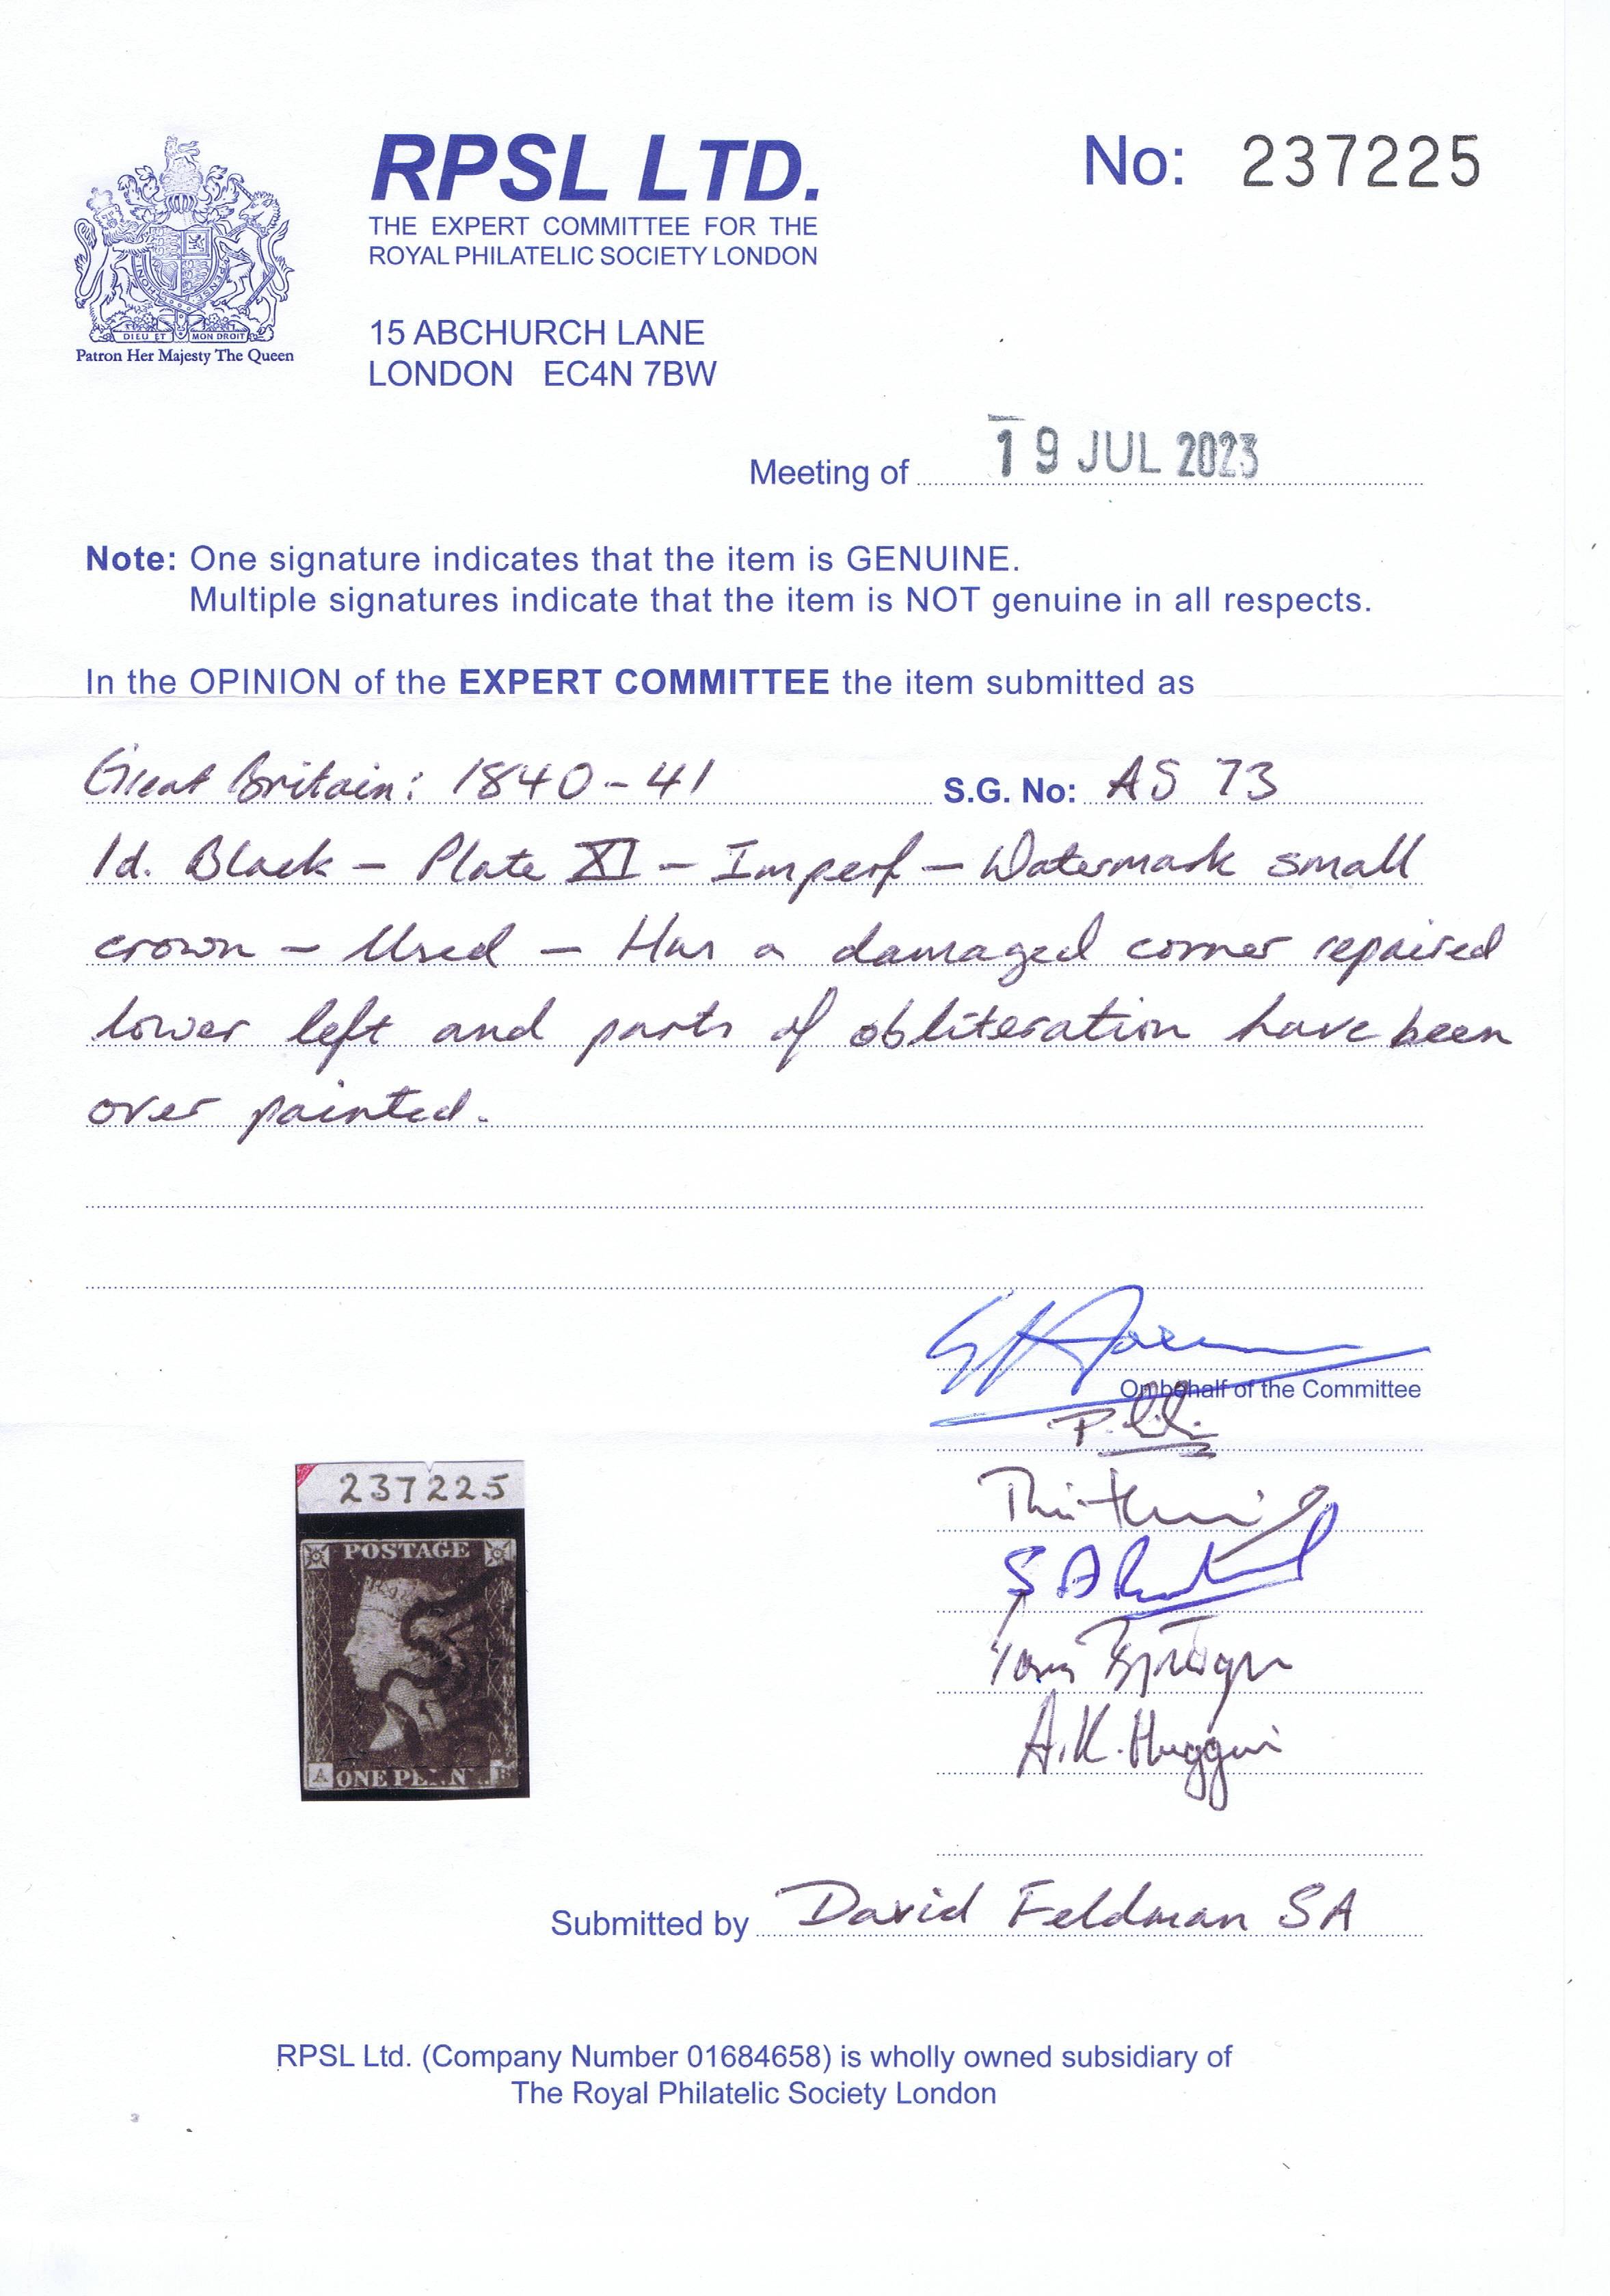 RPSL LTD.
No: 237225
THE EXPERT COMMITTEE FOR THE
ROYAL PHILATELIC SOCIETY LONDON
DIEU ET MON DROIT
Patron Her Majesty The Queen
15 ABCHURCH LANE
LONDON EC4N 7BW
Meeting of 19 JUL 2023
Note: One signature indicates that the item is GENUINE.
Multiple signatures indicate that the item is NOT genuine in all respects.
In the OPINION of the EXPERT COMMITTEE the item submitted as
Great Britain: 1840-41 S.G. No: AS 73
1d. Black - Plate XI - Imperf - Watermark small
crown - Used - Has a damaged corner repaired
lower left and parts of obliteration have been
over painted.
On behalf of the Committee
237225
POSTAGE
A ONE PENNY B
A.K. Huggins
Submitted by David Feldman SA
RPSL Ltd. (Company Number 01684658) is wholly owned subsidiary of
The Royal Philatelic Society London